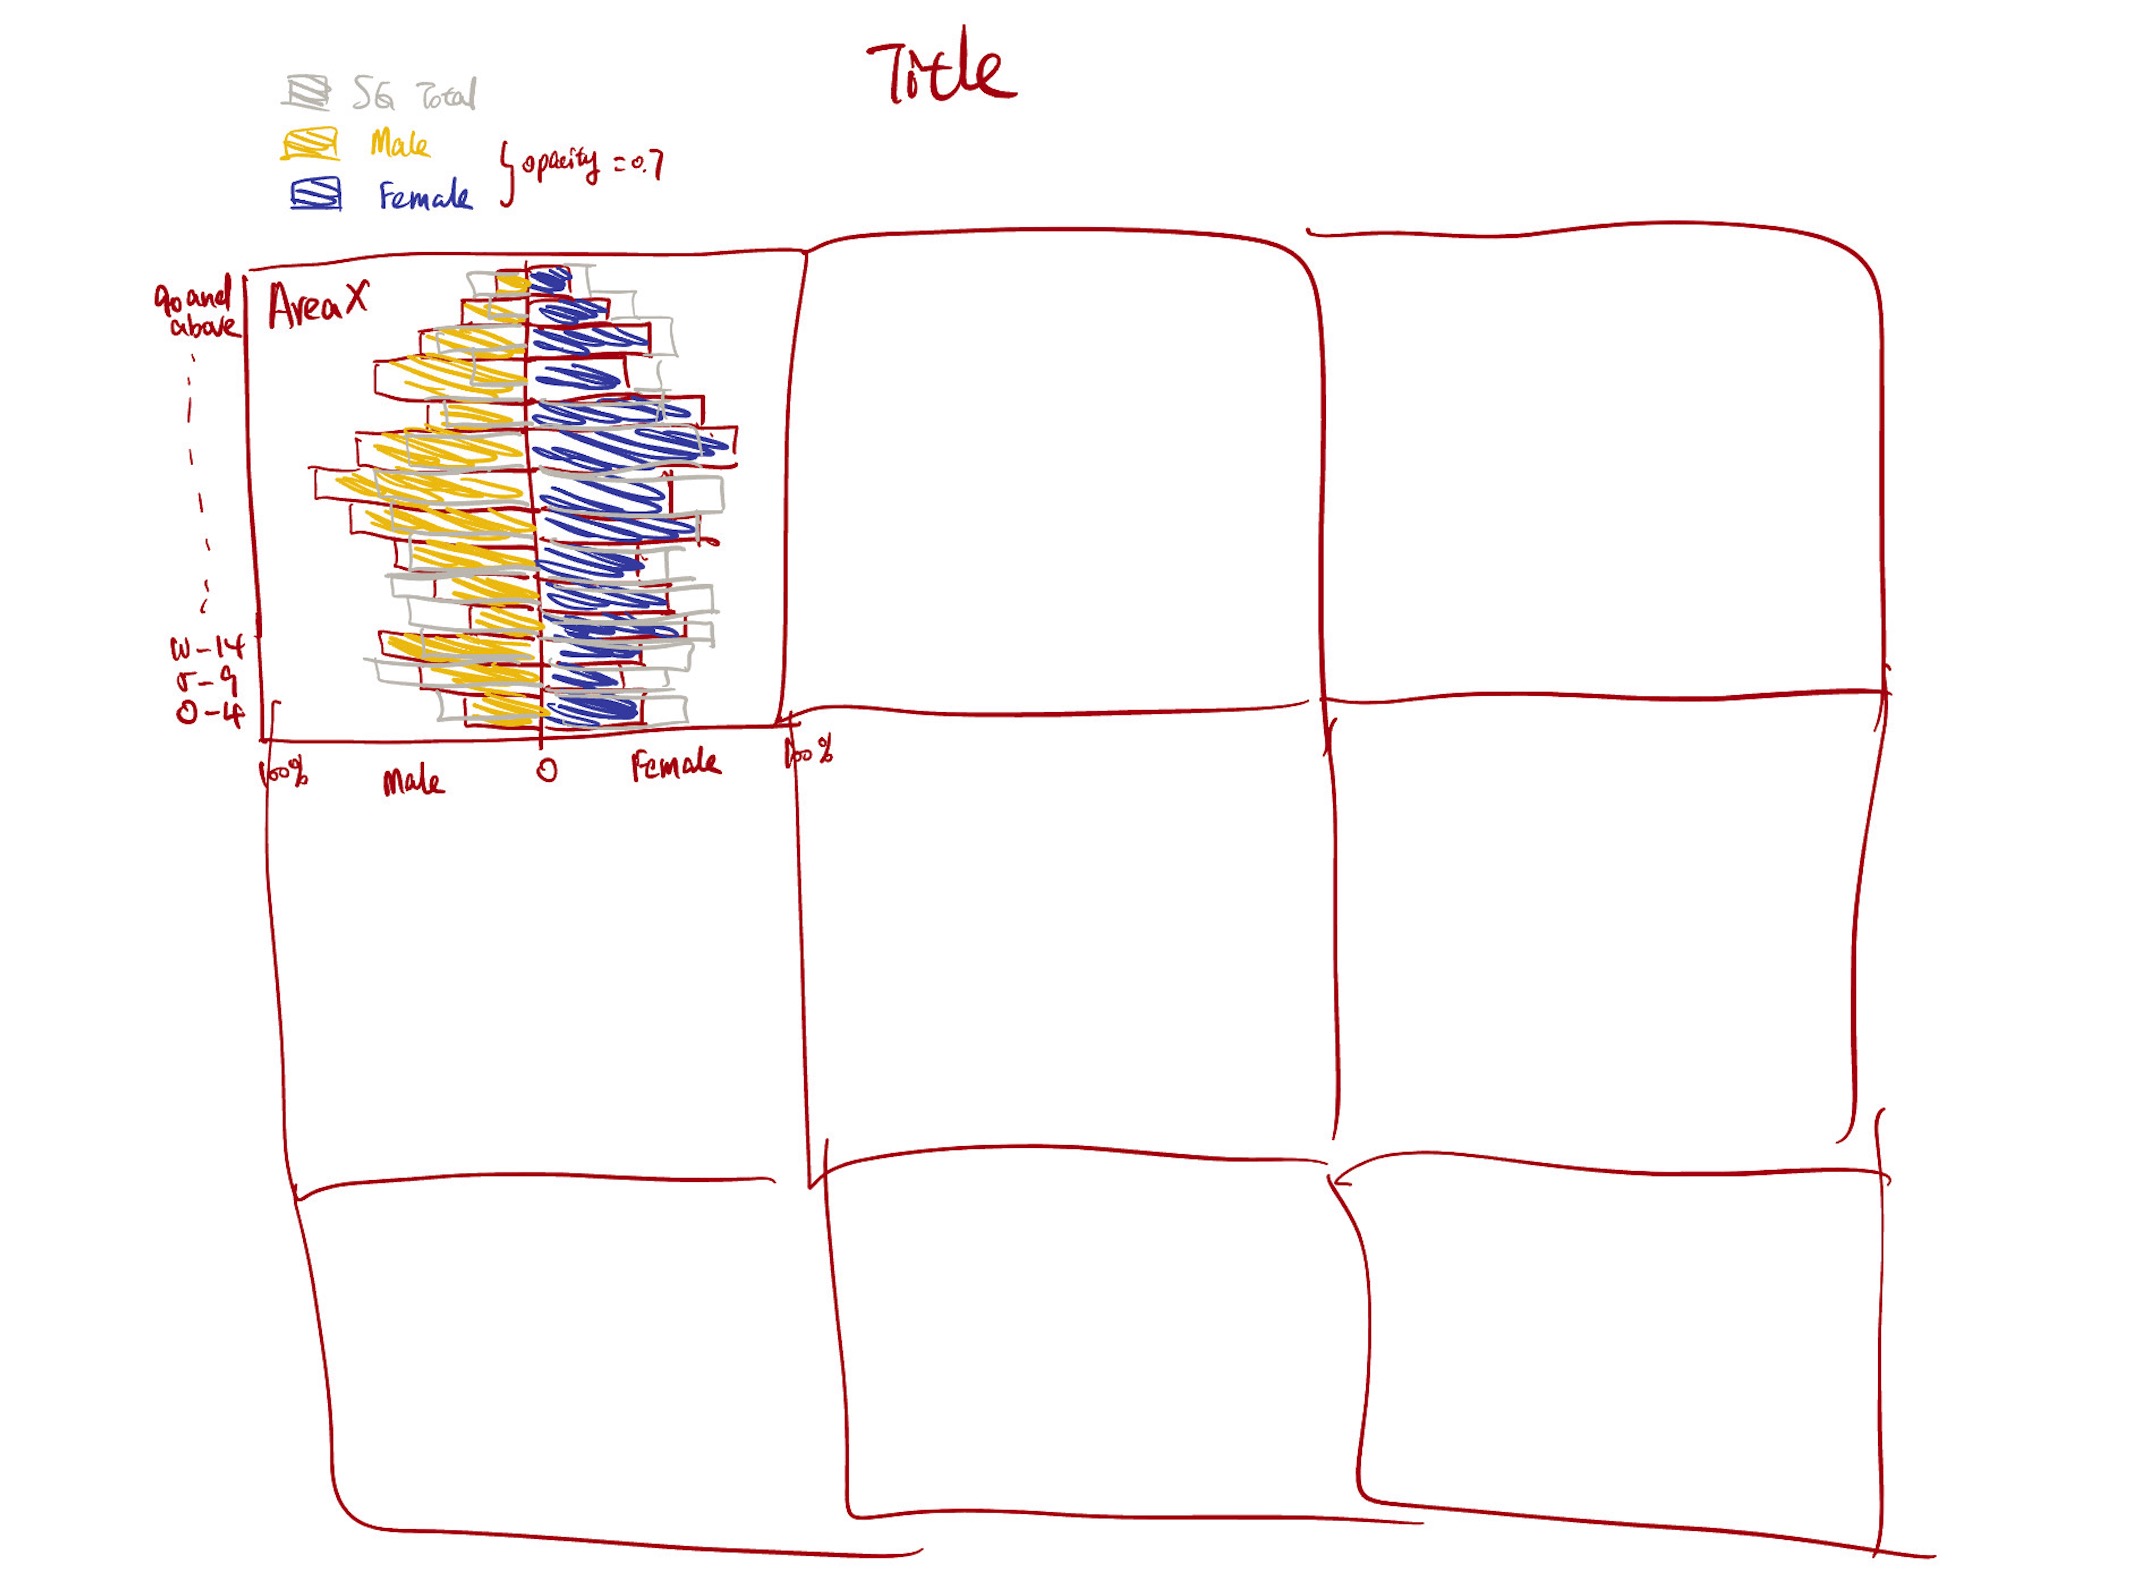 Title
SG Total
Male
Female
opacity = 0.7
90 and
above
Area X
10-14
5-9
0-4
100%
Male
0
Female
100%